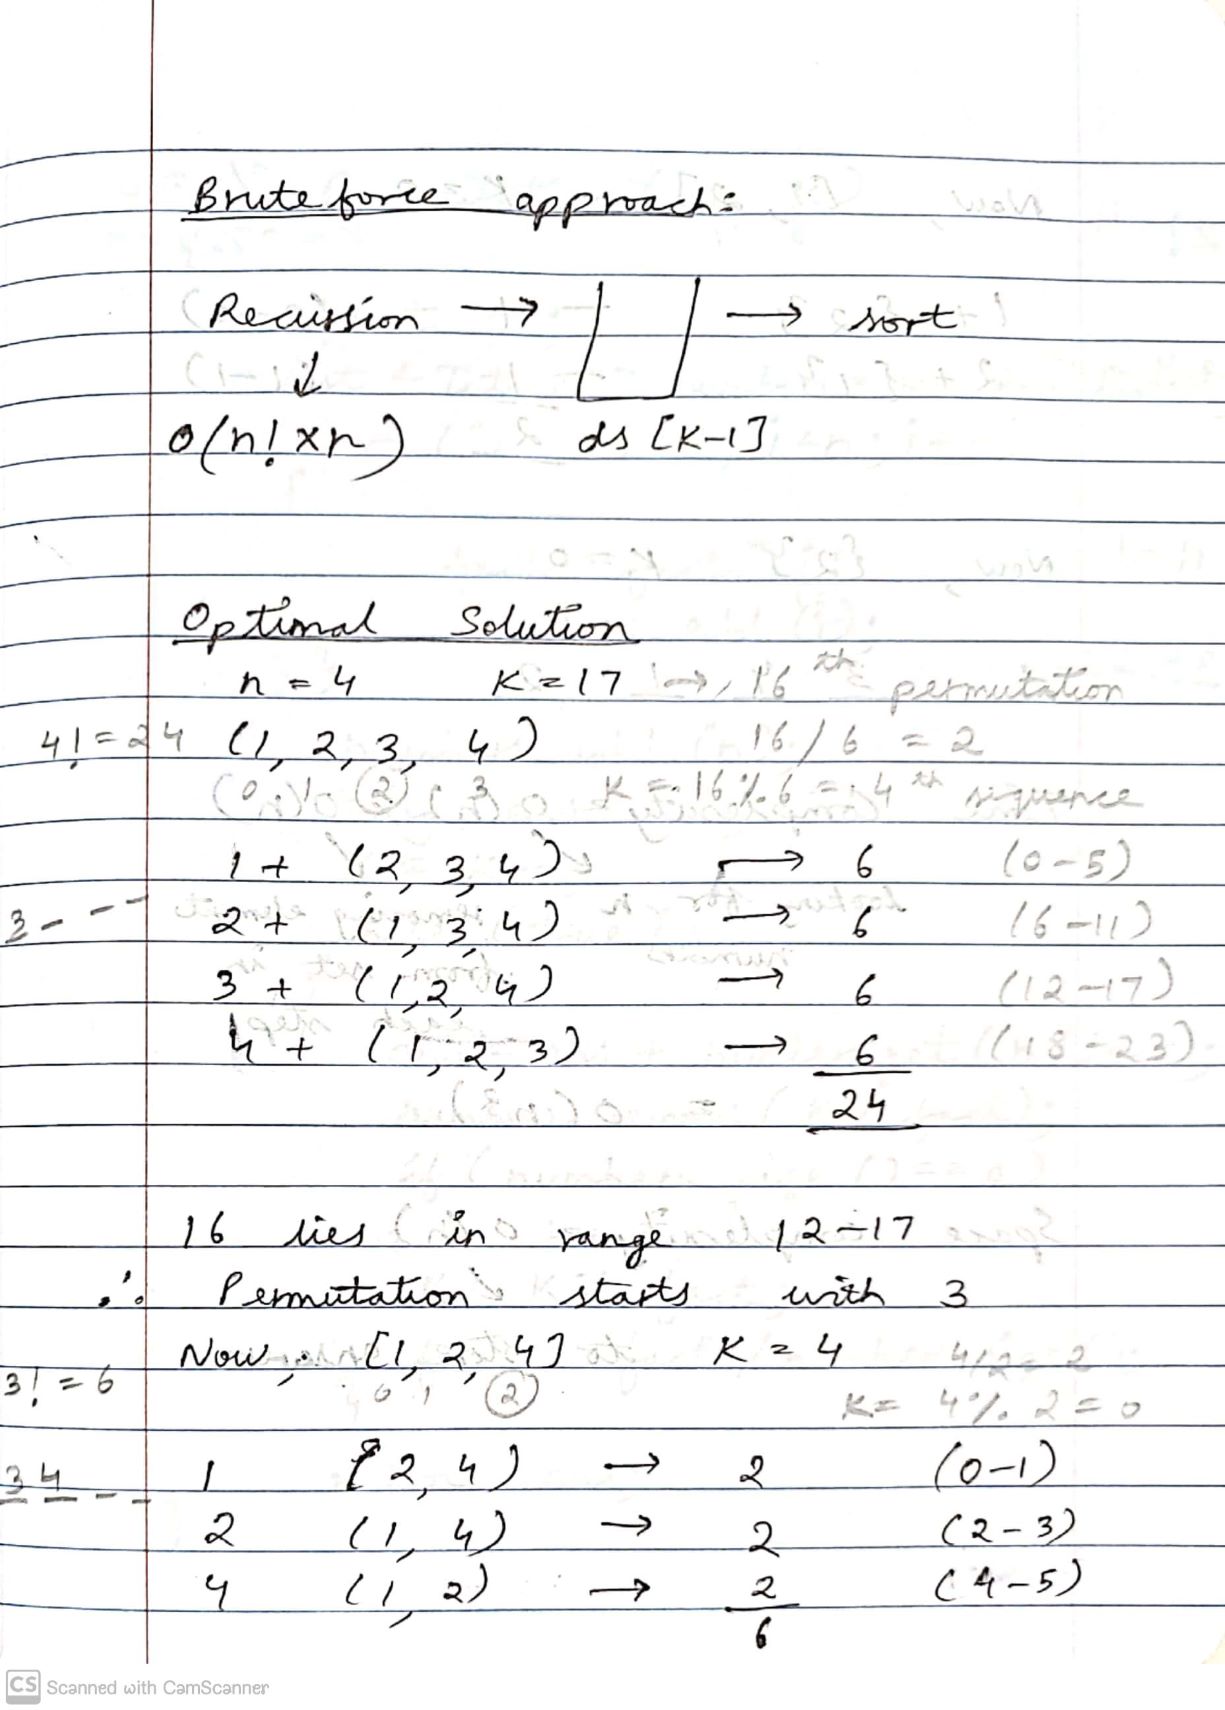 Brute force approach:
Recurssion → → sort
↓
O(n! x n) ds [K-1]
Optimal Solution
n = 4 K = 17 → 16th permutation
4! = 24 (1, 2, 3, 4) 16/6 = 2
(0, 1, 2, 3) K = 16 % 6 = 4th sequence
1 + (2, 3, 4) → 6 (0-5)
3 _ _ _ 2 + (1, 3, 4) → 6 (6-11)
3 + (1, 2, 4) → 6 (12-17)
4 + (1, 2, 3) → 6 (18-23)
24
16 lies in range 12-17
∴ Permutation starts with 3
Now, [1, 2, 4] K = 4 4/2 = 2
3! = 6 0 1 2 K = 4 % 2 = 0
3 4 _ _ 1 {2, 4) → 2 (0-1)
2 (1, 4) → 2 (2-3)
4 (1, 2) → 2 (4-5)
6
CS Scanned with CamScanner